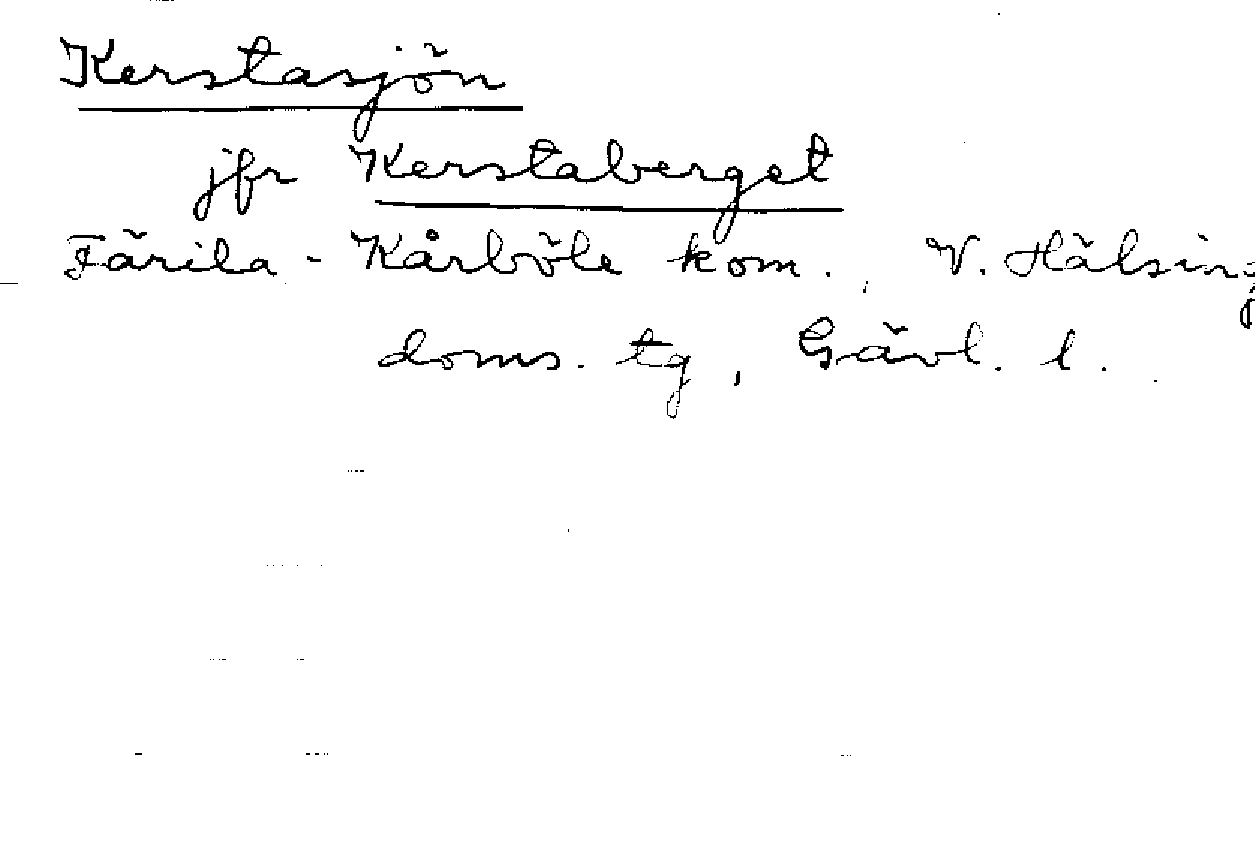 Kerstasjön
jfr Kerstaberget
Färila - Kårböle kom., V. Hälsing
doms. tg, Gävl. l.